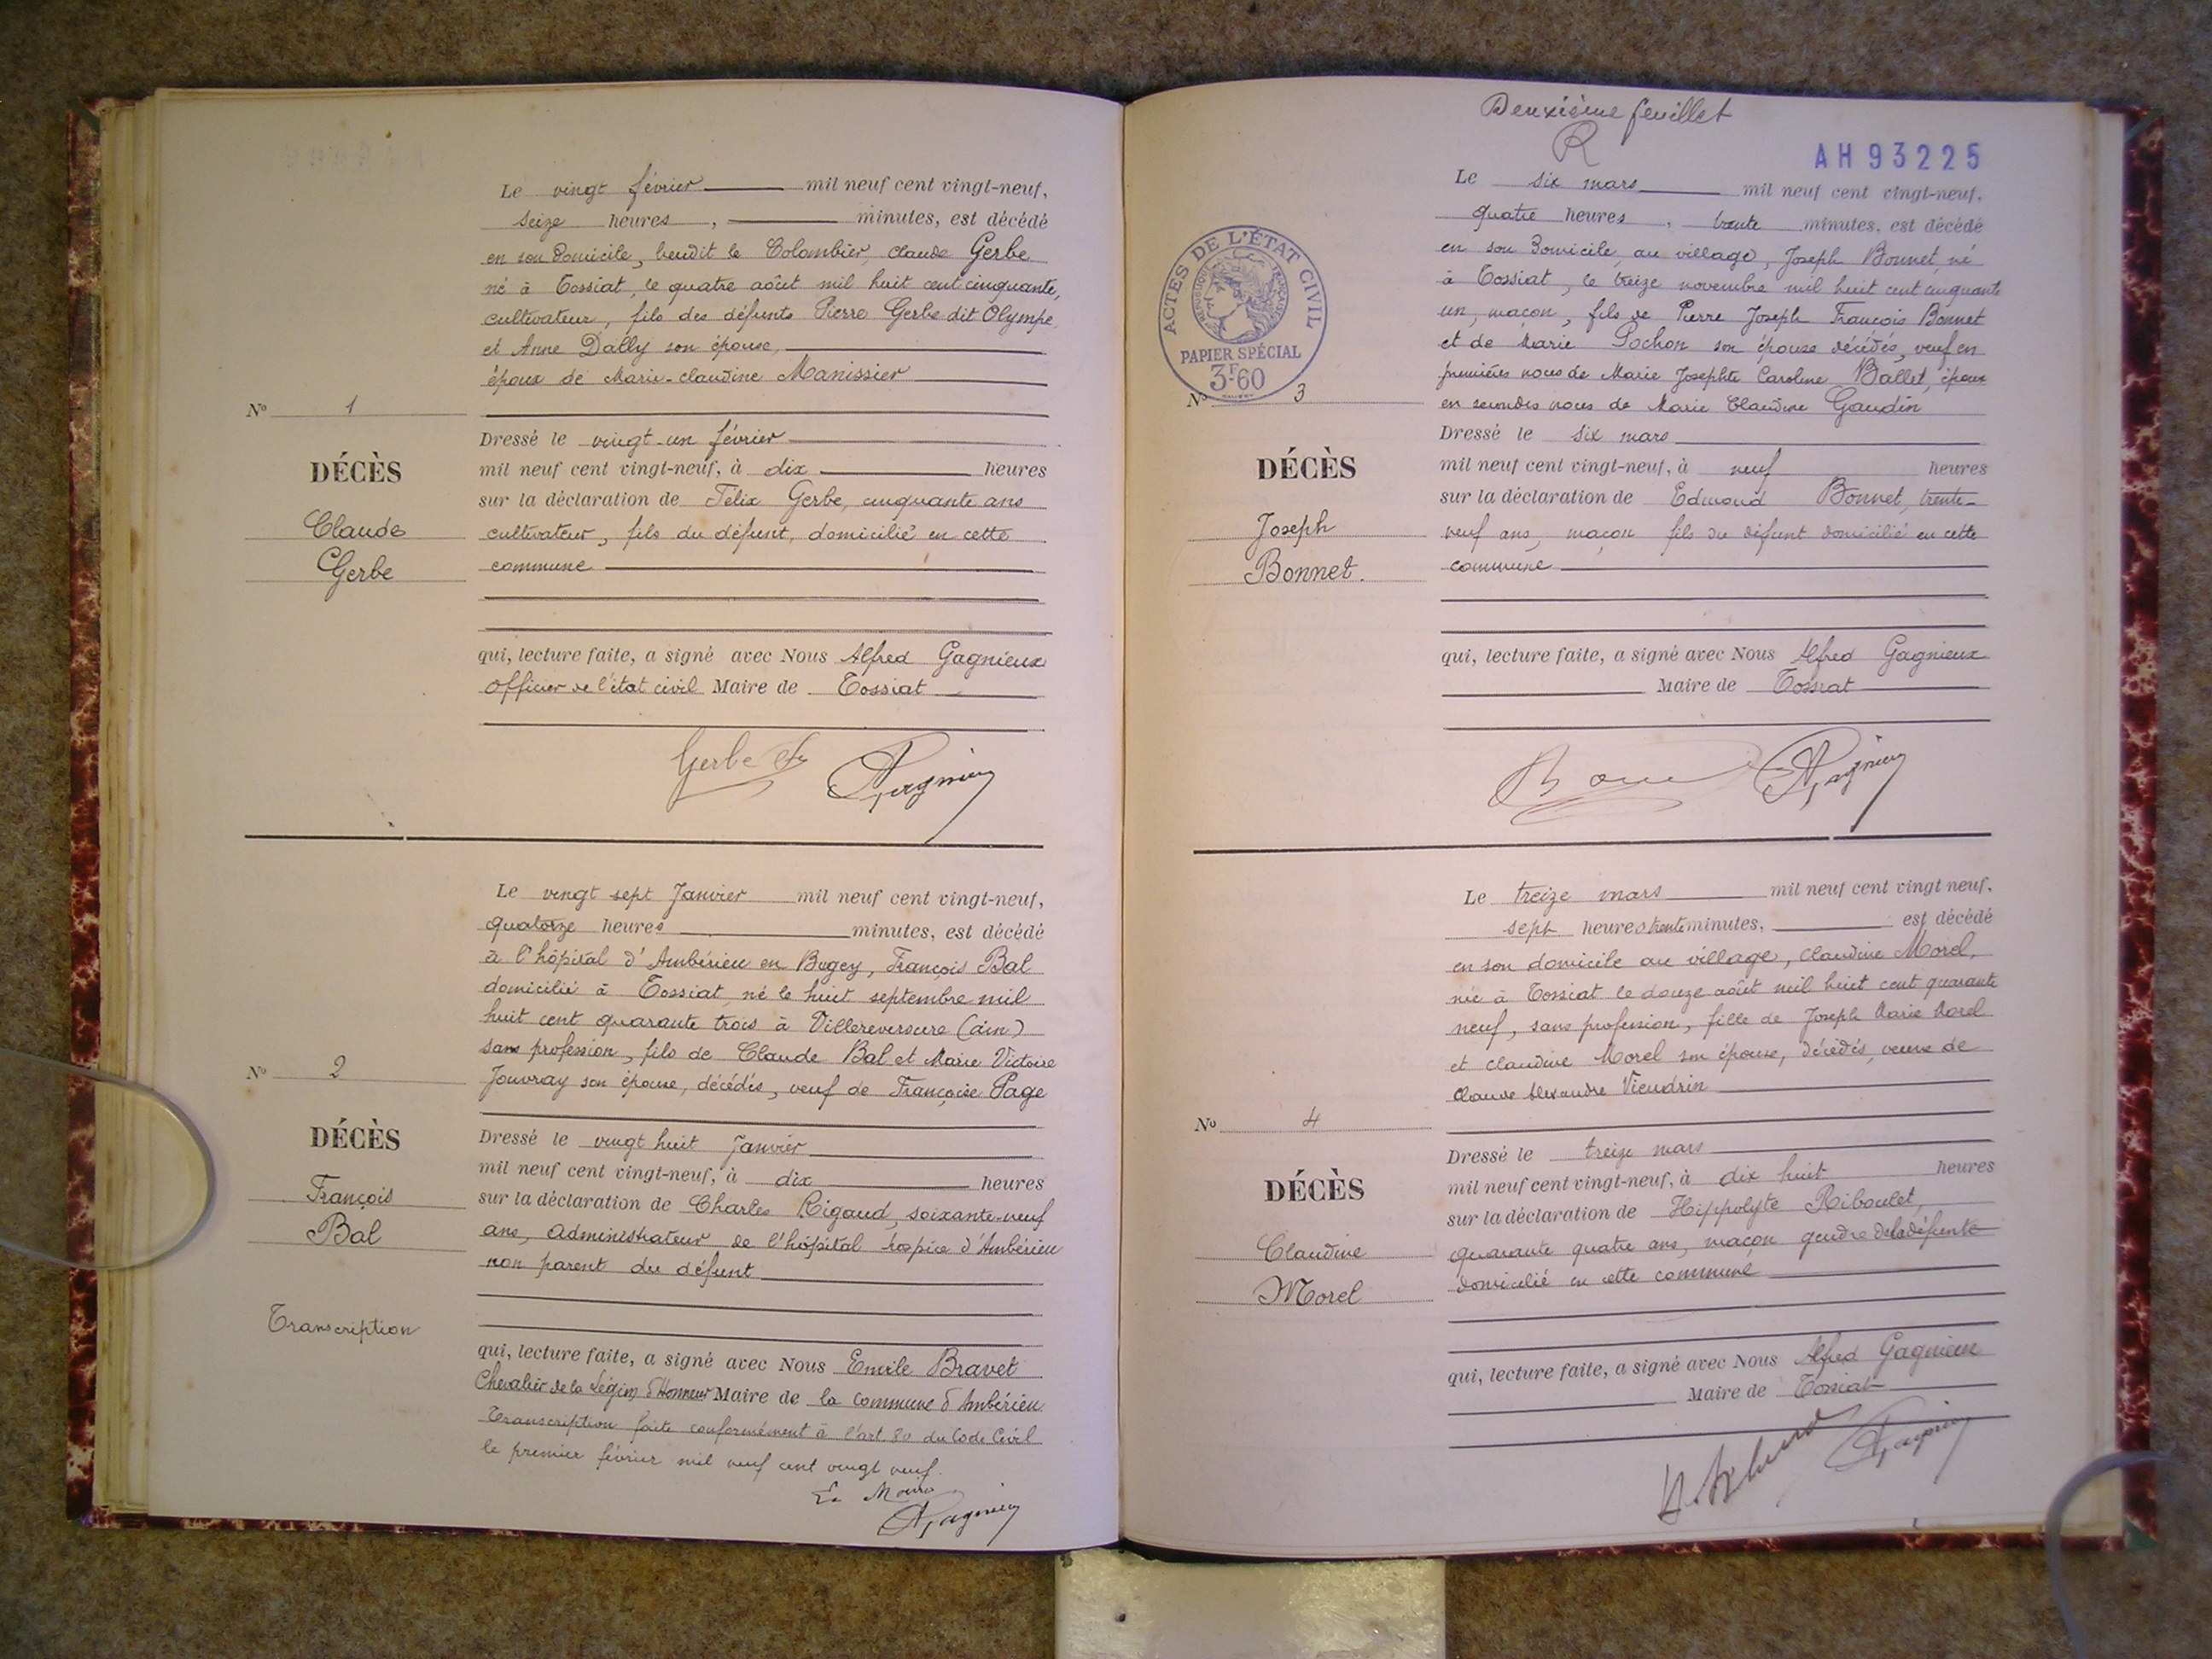 Le vingt février mil neuf cent vingt-neuf,
seize heures, minutes, est décédé
en son domicile, lieudit le Colombier, Claude Gerbe
né à Tossiat, le quatre août mil huit cent cinquante,
cultivateur, fils des défunts Pierre Gerbe dit Olympe
et Anne Dally son épouse,
époux de Marie-Claudine Manissier
No 1
Dressé le vingt-un février
mil neuf cent vingt-neuf, à dix heures
DÉCÈS
sur la déclaration de Félix Gerbe, cinquante ans
Claude
cultivateur, fils du défunt, domicilié en cette
Gerbe
commune
qui, lecture faite, a signé avec Nous Alfred Gagnieux
officier de l'état civil Maire de Tossiat
Gerbe
Gagnieux
Le vingt sept Janvier mil neuf cent vingt-neuf,
quatorze heures minutes, est décédé
à l'hôpital d'Ambérieu en Bugey, François Bal
domicilié à Tossiat, né le huit septembre mil
huit cent quarante trois à Villereversure (ain)
sans profession, fils de Claude Bal et Marie Victoire
No 2
Jouvray son épouse, décédés, veuf de Françoise Page
DÉCÈS
Dressé le vingt huit Janvier
mil neuf cent vingt-neuf, à dix heures
François
sur la déclaration de Charles Rigaud, soixante-neuf
Bal
ans, administrateur de l'hôpital hospice d'Ambérieu
non parent du défunt
Transcription
qui, lecture faite, a signé avec Nous Emile Bravet
Chevalier de la Légion d'Honneur Maire de la commune d'Ambérieu
Transcription faite conformément à l'art. 80 du Code Civil
le premier février mil neuf cent vingt neuf.
Le Maire
Gagnieux
Deuxième feuillet
R
AH 93225
Le six mars mil neuf cent vingt-neuf,
quatre heures, trente minutes, est décédé
en son domicile, au village, Joseph Bonnet, né
à Tossiat, le treize novembre mil huit cent cinquante
un, maçon, fils de Pierre Joseph François Bonnet
et de Marie Pochon son épouse décédés, veuf en
premières noces de Marie Josephte Caroline Ballet, époux
en secondes noces de Marie Claudine Gaudin
ACTES DE L'ÉTAT CIVIL
RÉPUBLIQUE FRANÇAISE
PAPIER SPÉCIAL
3F60
No 3
Dressé le six mars
mil neuf cent vingt-neuf, à neuf heures
DÉCÈS
sur la déclaration de Edmond Bonnet, trente-
Joseph
neuf ans, maçon fils du défunt domicilié en cette
Bonnet.
commune
qui, lecture faite, a signé avec Nous Alfred Gagnieux
Maire de Tossiat
Gagnieux
Le treize mars mil neuf cent vingt neuf,
sept heures trente minutes, est décédé
en son domicile au village, Claudine Morel,
née à Tossiat le douze août mil huit cent quarante
neuf, sans profession, fille de Joseph Marie Morel
et Claudine Morel son épouse, décédés, veuve de
Claude Alexandre Vieudrin
No 4
Dressé le treize mars
mil neuf cent vingt-neuf, à dix huit heures
DÉCÈS
sur la déclaration de Hippolyte Riboulet,
Claudine
quarante quatre ans, maçon gendre de la défunte
Morel
domicilié en cette commune
qui, lecture faite, a signé avec Nous Alfred Gagnieux
Maire de Tossiat
Gagnieux